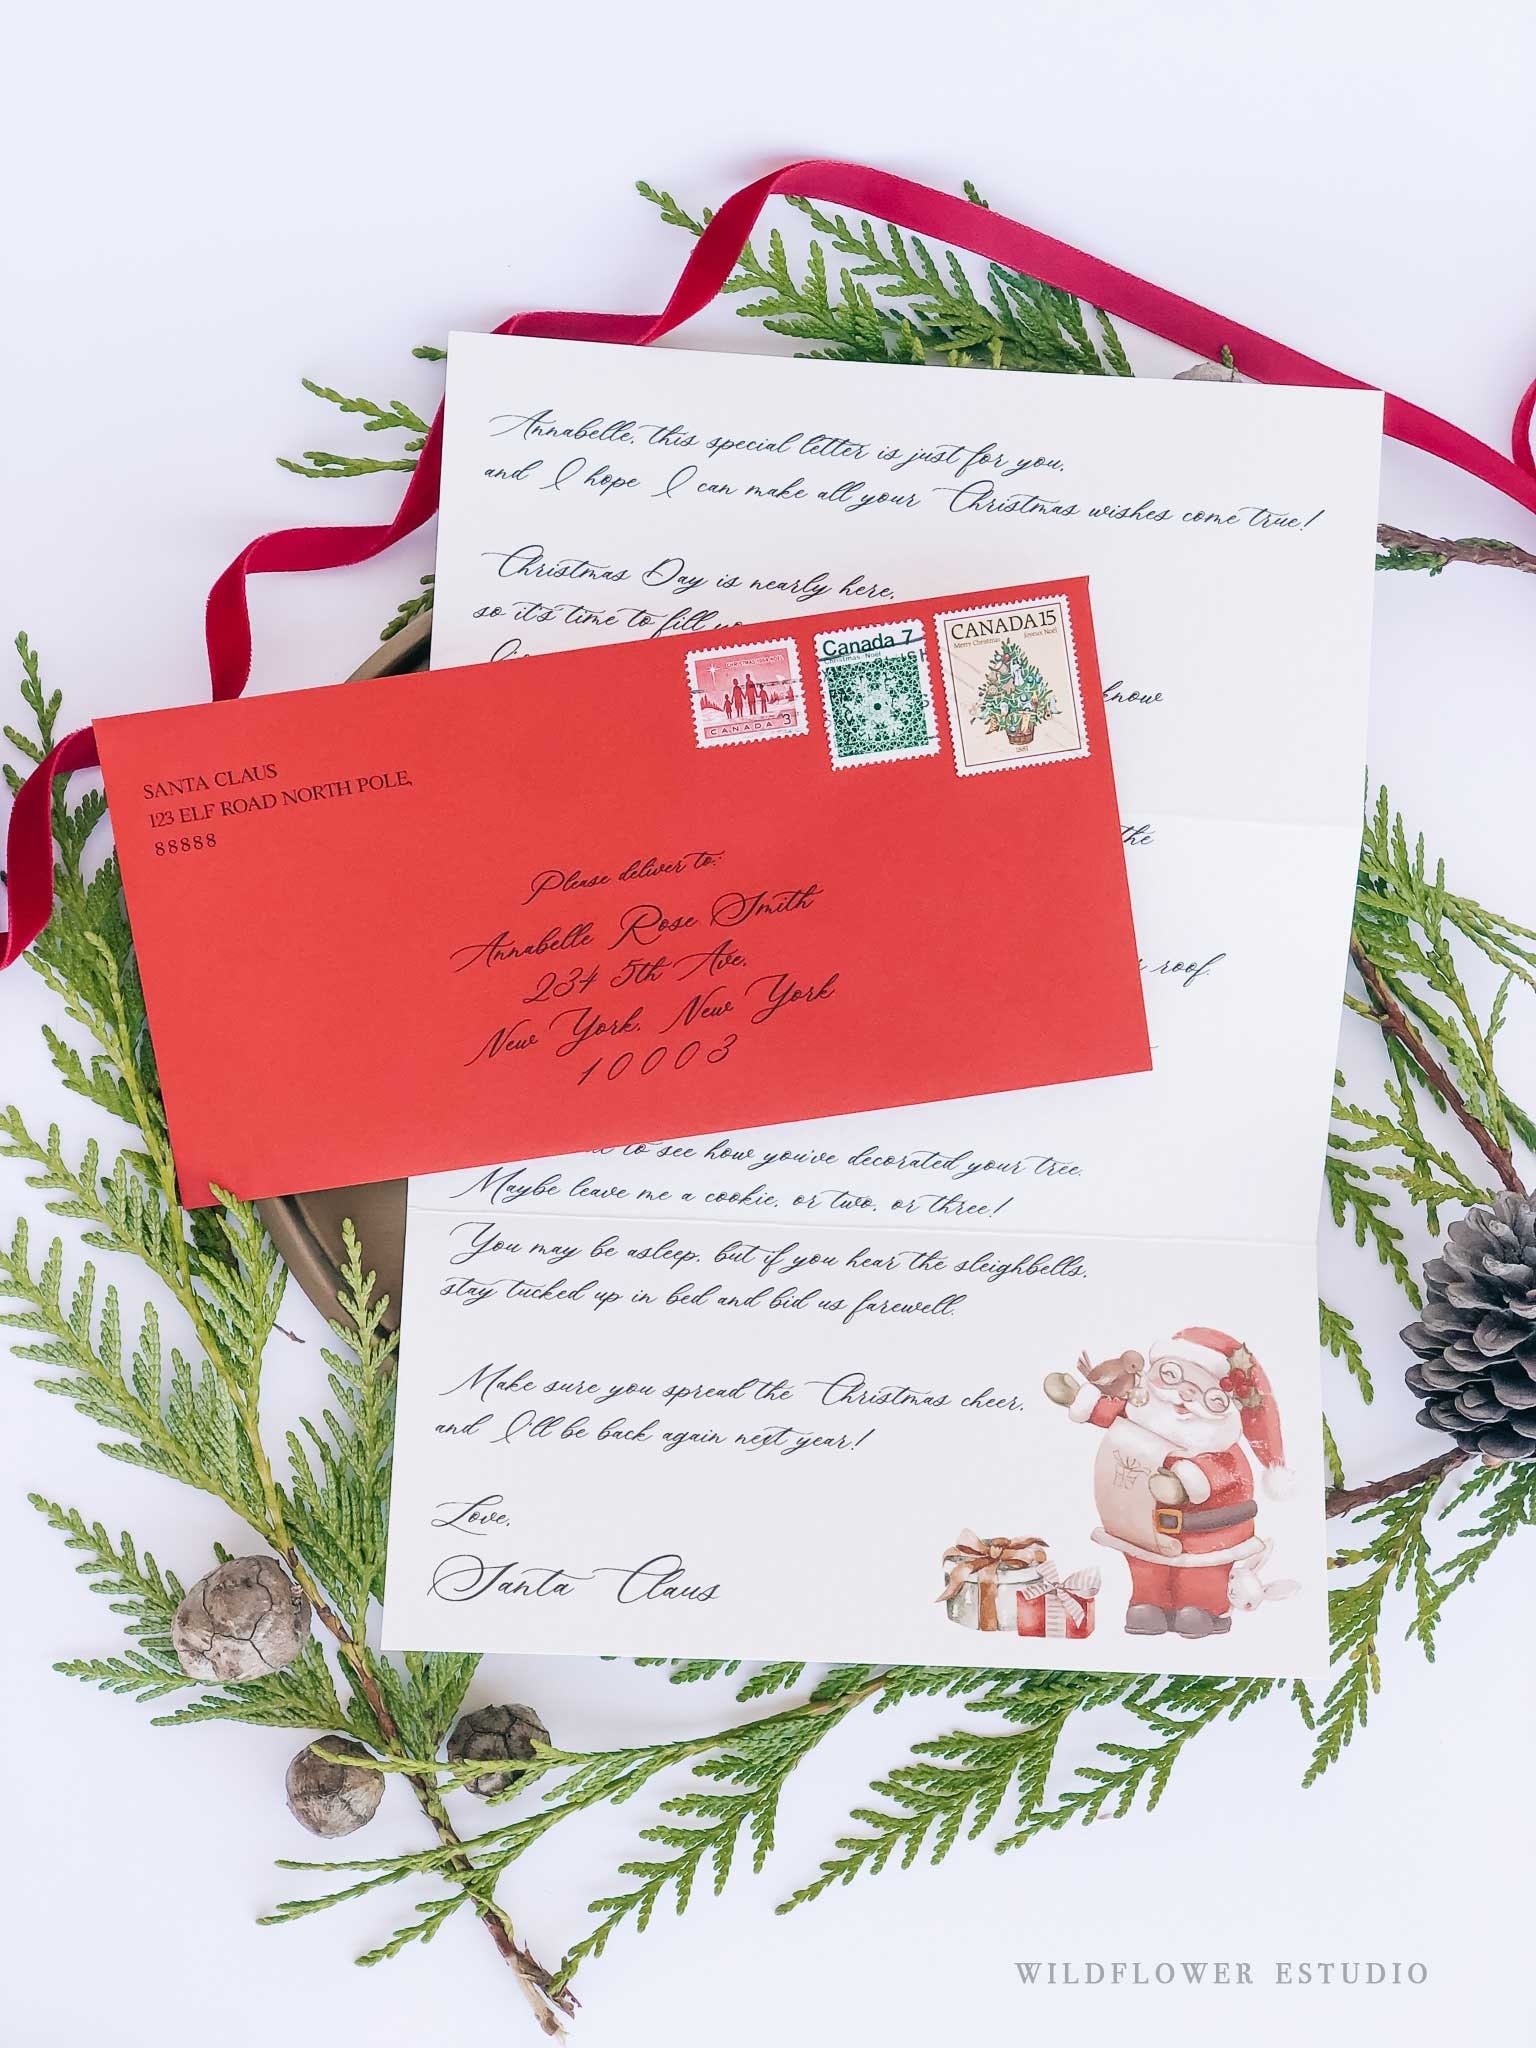 Annabelle, this special letter is just for you,
and I hope I can make all your Christmas wishes come true!
Christmas Day is nearly here,
so it's time to fill
know
the
roof.
to see how you've decorated your tree.
Maybe leave me a cookie, or two, or three!
You may be asleep, but if you hear the sleighbells,
stay tucked up in bed and bid us farewell.
Make sure you spread the Christmas cheer,
and I'll be back again next year!
Love,
Santa Claus
SANTA CLAUS
123 ELF ROAD NORTH POLE,
88888
CHRISTMAS 1964 NOËL
CANADA 3
Canada 7
Christmas-Noël
CANADA 15
Merry Christmas Joyeux Noël
1881
Please deliver to:
Annabelle Rose Smith
234 5th Ave.
New York, New York
10003
WILDFLOWER ESTUDIO